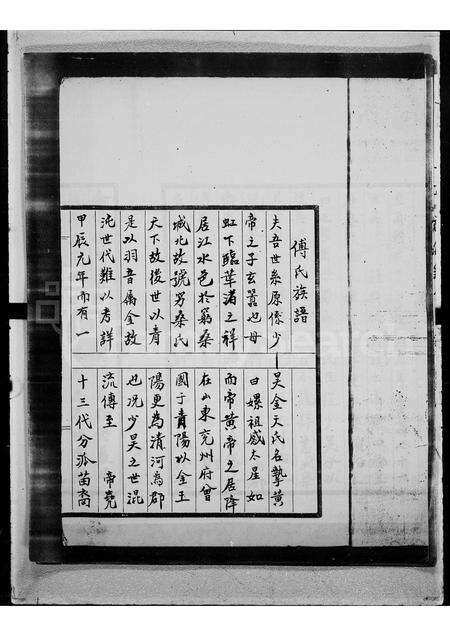 傅氏族譜
夫吾世系原係少昊金天氏名摯黃
帝之子玄囂也母曰嫘祖感太星如
虹下臨華渚之祥而帝黃帝之居降
居江水邑於窮桑在山東兗州府曾
城北故號另桑氏國于青陽以金王
天下故後世以青陽更為清河為郡
是以羽音屬金故也況少昊之世混
沌世代難以考詳流傳至 帝堯
甲辰元年而有一十三代分派苗裔